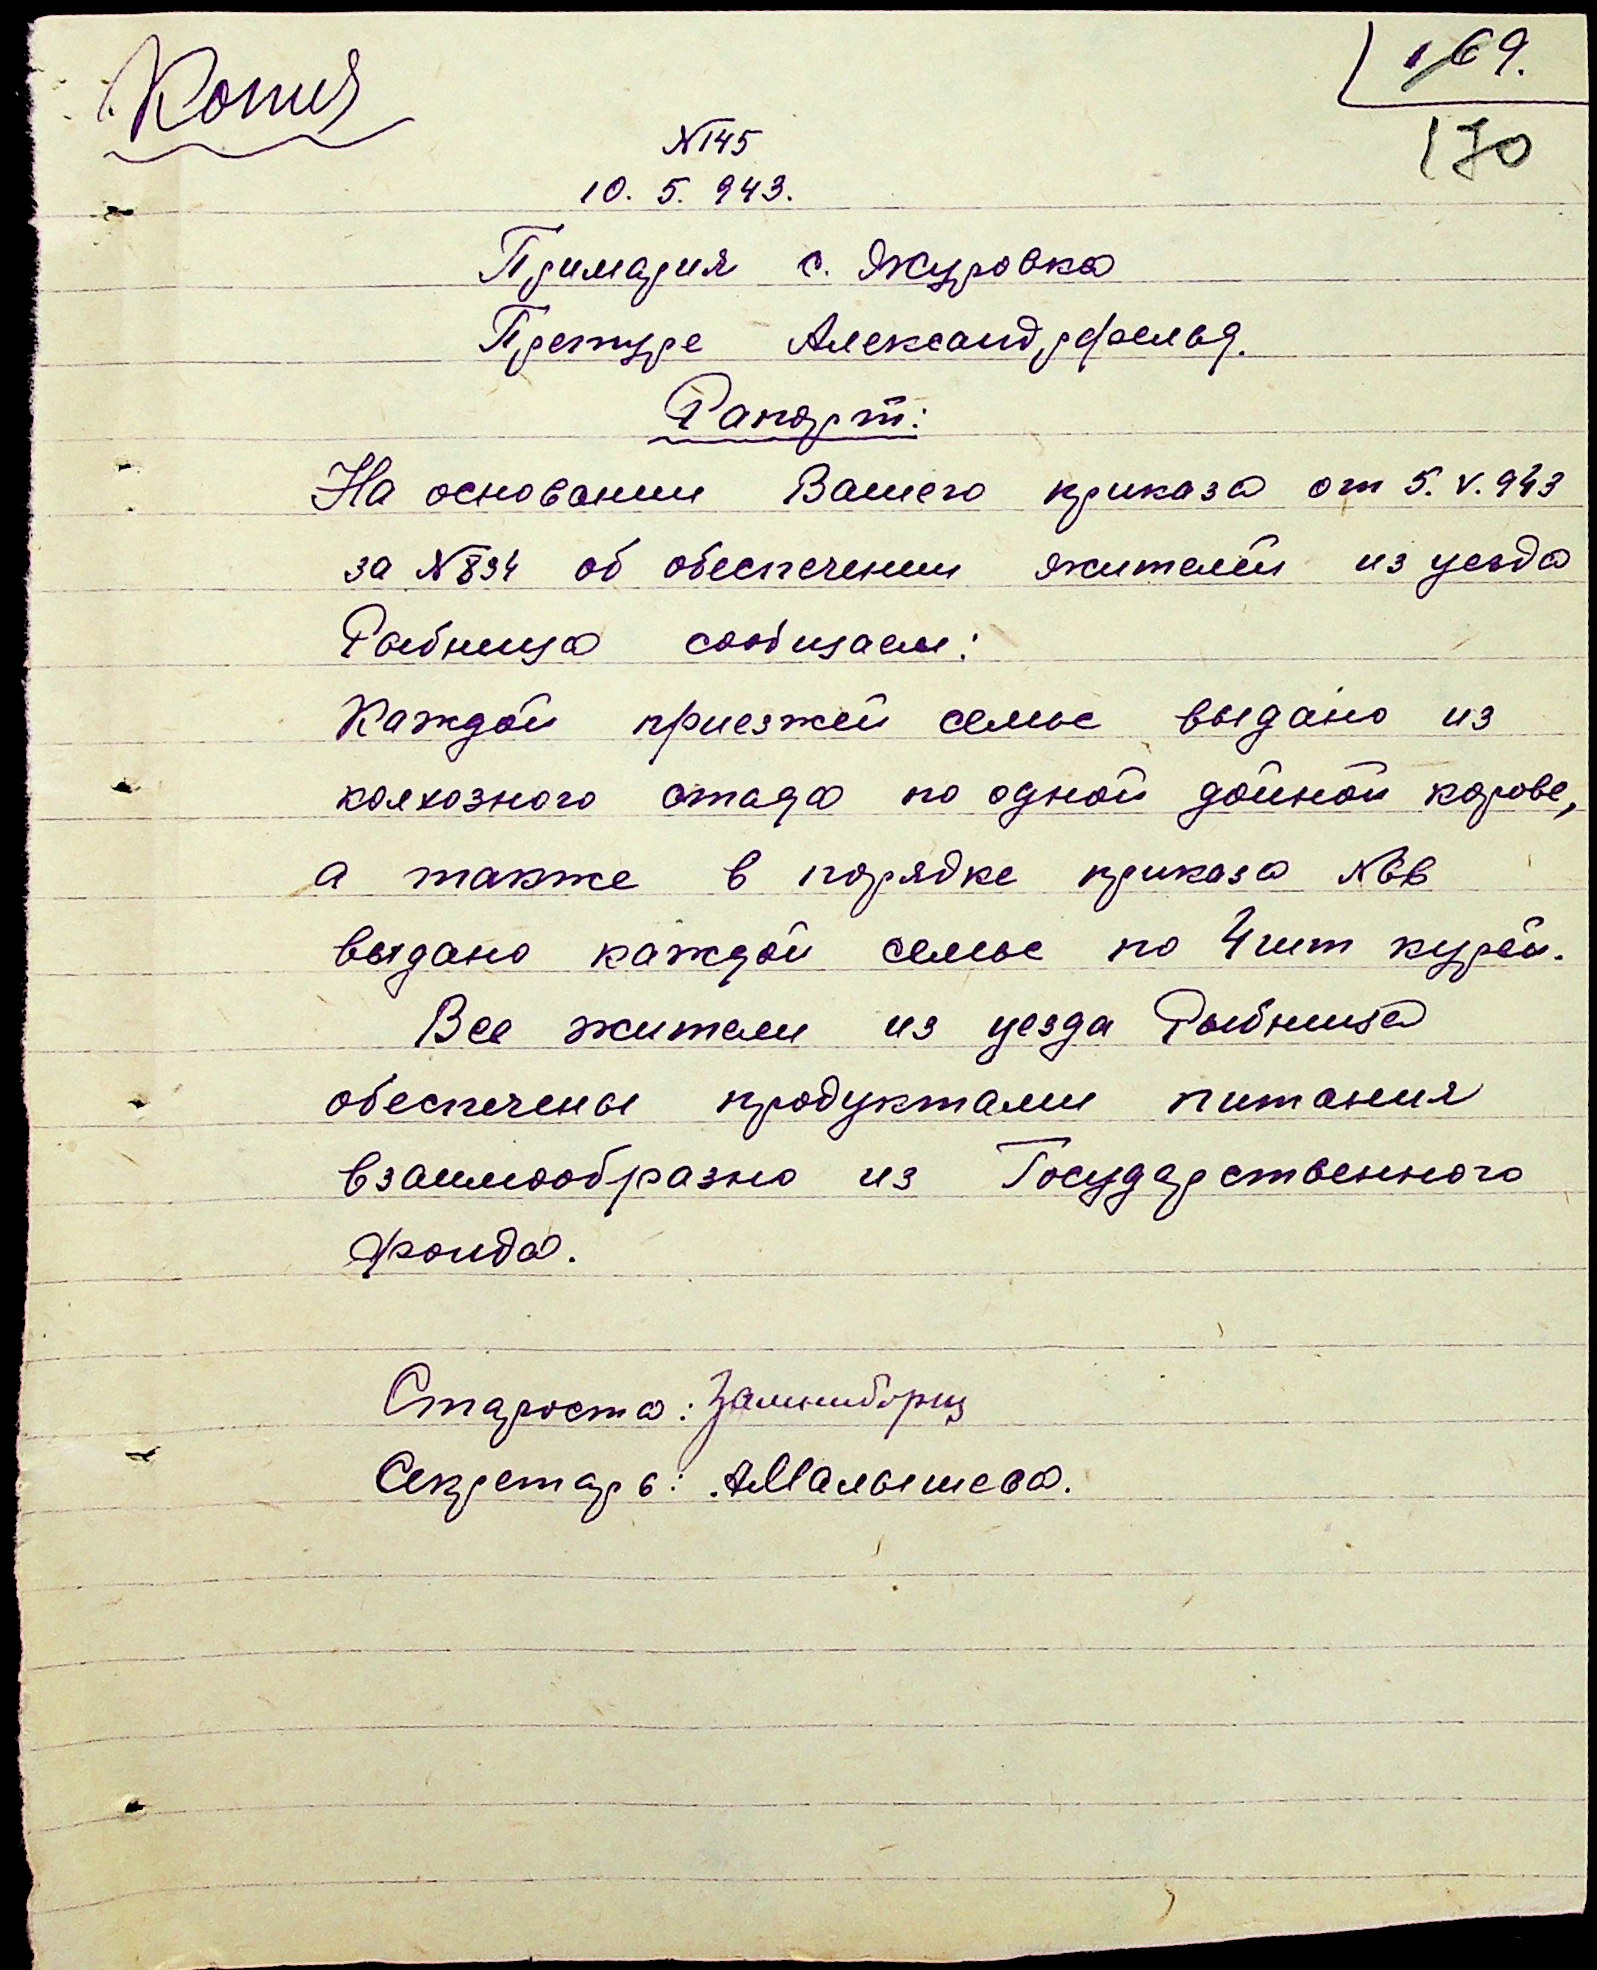 Копия
169.
170
№145
10. 5. 943.
Примария с. Журовка
Претуре Александрфельд.
Рапорт:
На основании Вашего приказа от 5. V. 943
за №834 об обеспечении жителей из уезда
Рыбница сообщаем:
Каждой приезжей семье выдано из
колхозного стада по одной дойной корове,
а также в порядке приказа
выдано каждой семье по 4 шт курей.
Все жители из уезда Рыбница
обеспечены продуктами питания
взаимообразно из Государственного
фонда.
Староста:
Секретарь: АМалышева.